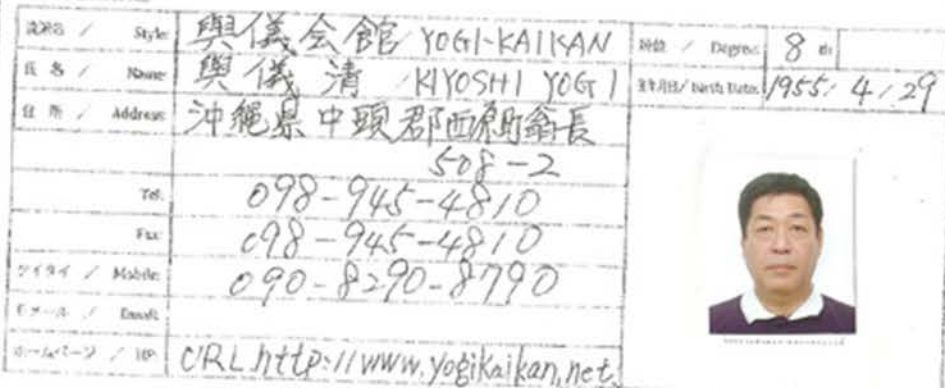 流派名 / Style 與儀会館 / YOGI-KAIKAN 段位 / Degree 8 th
氏名 / Name 與儀 清 / KIYOSHI YOGI 生年月日 / Birth Date 1955. 4. 29
住所 / Address 沖縄県中頭郡西原町翁長
508-2
Tel. 098-945-4810
Fax 098-945-4810
ケイタイ / Mobile 090-8290-8790
Eメール / Email
ホームページ / HP URL http://www.yogikaikan.net